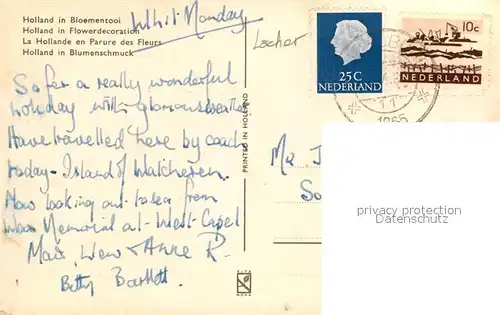 Holland in Bloementooi
Holland in Flowerdecoration
La Hollande en Parure des Fleurs
Holland in Blumenschmuck
Whit Monday
Locher
25C
NEDERLAND
10c
NEDERLAND
11
1965
So far a really wonderful
holiday with glorious weather
Have travelled here by coach
today - Island of Walcheren.
Now looking out to sea from
War Memorial at West Capel
Max, Wew & Anne R.
Betty Bartlett
PRINTED IN HOLLAND
Mr J
So
privacy protection
Datenschutz